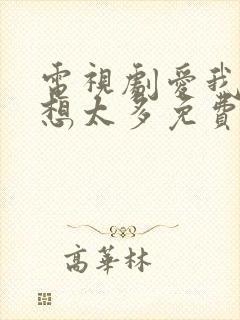 電視劇愛我
想太多免費
高華林